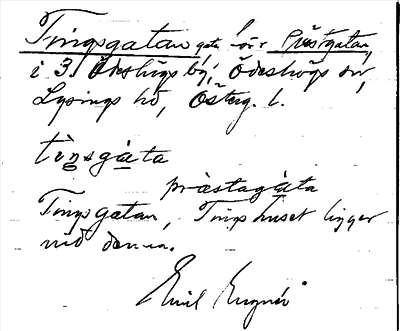 Tingsgatan gata, förr Prästgatan,
i 3. Ödeshögs by, Ödeshögs sn,
Lysings hd, Österg. l.
tiŋsgáta
præstagáta
Tingsgatan, Tingshuset ligger
vid denna.
Emil